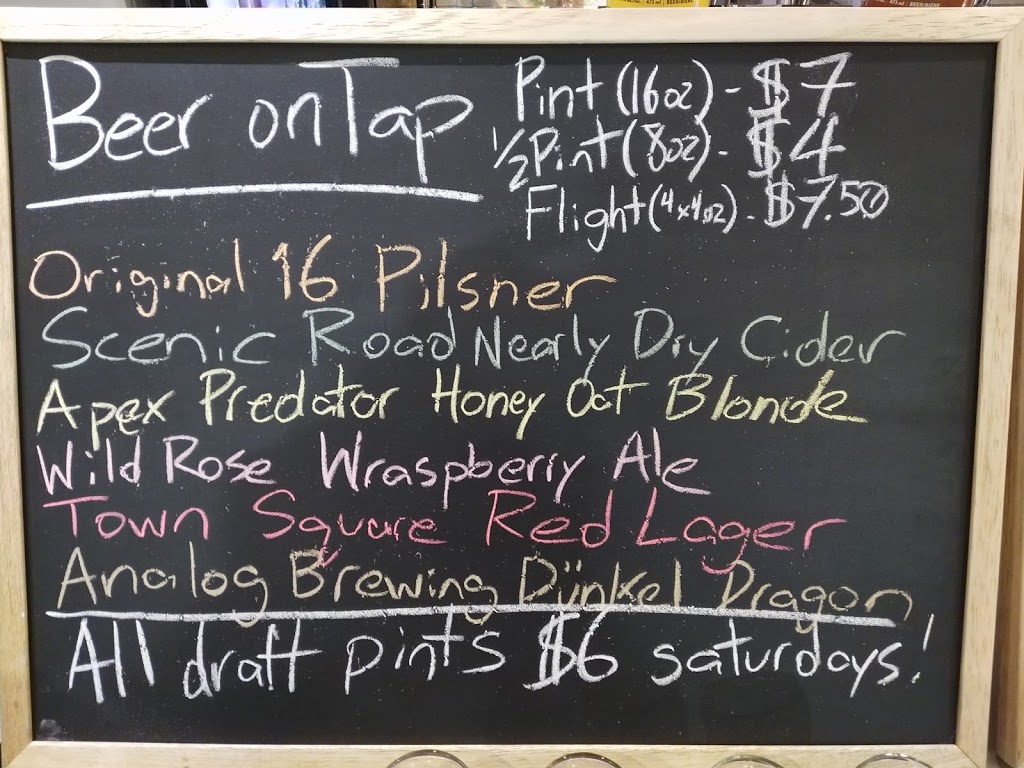 Beer on Tap
Pint (16oz) - $7
1/2 Pint (8oz) - $4
Flight (4x4oz) - $7.50
Original 16 Pilsner
Scenic Road Nearly Dry Cider
Apex Predator Honey Oat Blonde
Wild Rose Wraspberry Ale
Town Square Red Lager
Analog Brewing Dünkel Dragon
All draft pints $6 saturdays!